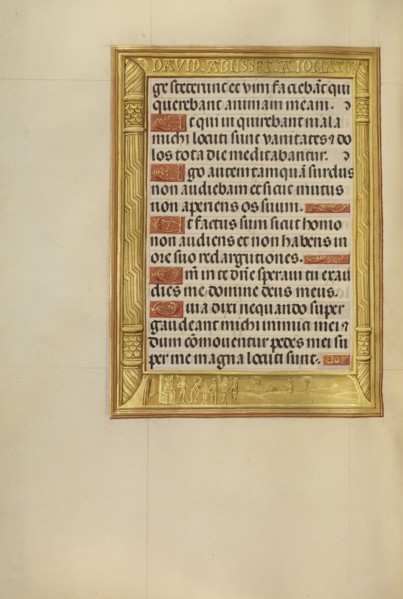 DAVID
ge steterunt et vim faciebāt qui
querebant animam meam.
Et qui inquirebant mala
michi locuti sunt vanitates ⁊ do
los tota die meditabantur.
Ego autem tamquā surdus
non audiebam et sicut mutus
non aperiens os suum.
Et factus sum sicut homo
non audiens et non habens in
ore suo redargutiones.
Qm̄ in te dn̄e speravi tu exau
dies me domine deus meus.
Quia dixi nequando super
gaudeant michi inimici mei ⁊
dum cōmoventur pedes mei su
per me magna locuti sunt.